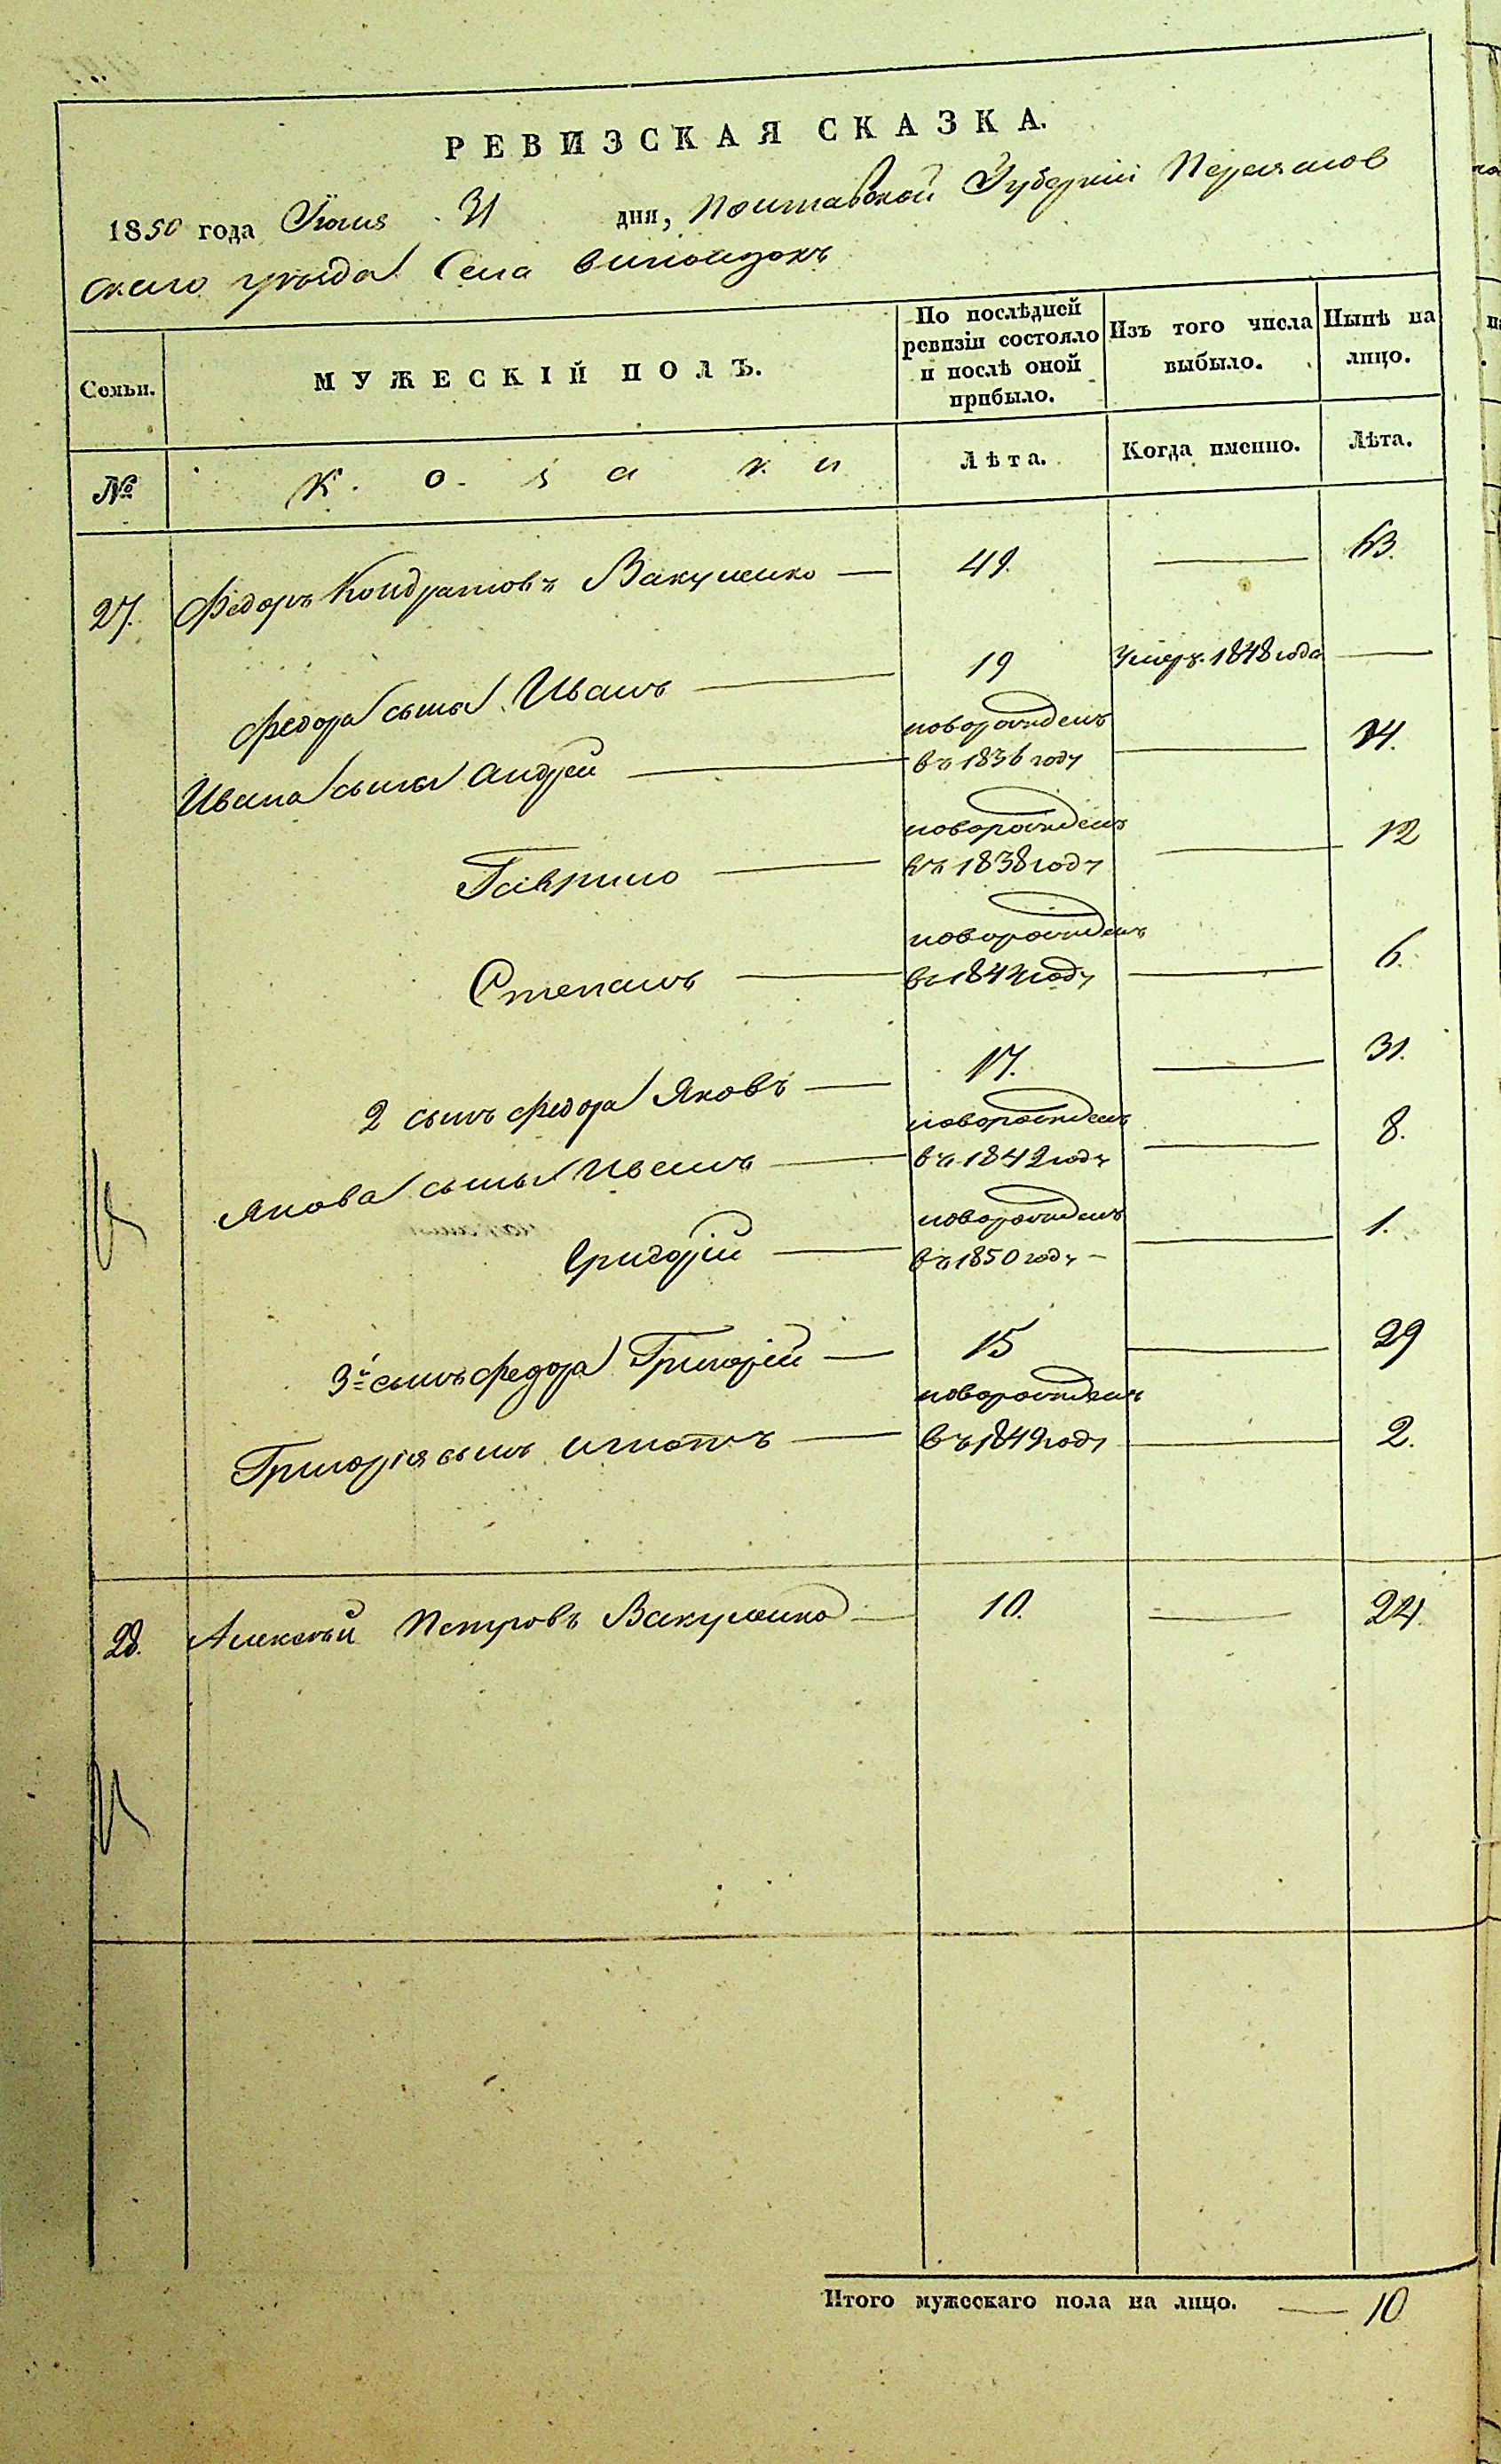 РЕВИЗСКАЯ СКАЗКА.
1850 года Июля 31 дня, Полтавской Губерніи Переяслов
скаго уѣзда Села
Семьи. МУЖЕСКІЙ ПОЛЪ. По послѣдней ревизіи состояло и послѣ оной прибыло. Изъ того числа выбыло. Нынѣ на лицо.
№ Козаки Лѣта. Когда именно. Лѣта.
27. Федоръ Кондратовъ Вакуленко — 49. — 63.
Федора сынъ Иванъ — 19 Умеръ 1848 года —
Ивана сынъ Андрей — новорожденъ въ 1836 году — 14.
Гаврило — новорожденъ въ 1838 году — 12
Степанъ — новорожденъ въ 1844 году — 6.
2 сынъ Федора Яковъ — 17. — 31.
Якова сынъ Иванъ — новорожденъ въ 1842 году — 8.
Григорій — новорожденъ въ 1850 году — 1.
3й сынъ Федора Григорій — 15 — 29
Григорія сынъ Игнатъ — новорожденъ въ 1849 году — 2.
28. Алексѣй Петровъ Вакуленко — 10. — 24.
Итого мужескаго пола на лицо. — 10